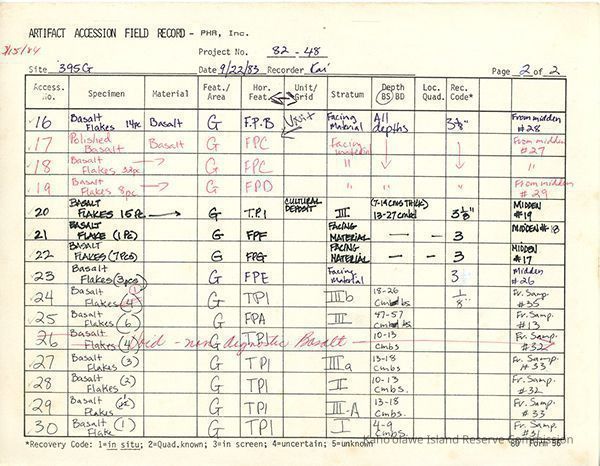 ARTIFACT ACCESSION FIELD RECORD - PHR, Inc.
3/15/84
Project No. 82-48
Site 395G Date 9/22/83 Recorder Kai Page 2 of 2
Access. No. Specimen Material Feat./Area Hor. Feat. Unit/Grid Stratum Depth BS/BD Loc. Quad. Rec. Code*
16 Basalt Flakes 14pc Basalt G F.P.B Unit Facing Material All depths 3 1/8" From midden #28
.17 Polished Basalt Basalt G FPC Facing material From midden #27
.18 Basalt Flakes 32pc G FPC " "
.19 Basalt Flakes 8pc G FPD " " " From midden #29
20 BASALT FLAKES 15 PC G T.P.1 CULTURAL DEPOSIT III (7-14 CMS THICK) 13-27 cmbd 3 1/8" MIDDEN #19
21 BASALT FLAKE (1 PC) G FPF FACING MATERIAL - - 3 MIDDEN #18
22 BASALT FLAKES (7 PCS) G FPG FACING MATERIAL - - 3 MIDDEN #17
.23 Basalt Flakes (3 pcs) G FPE Facing Material 3 Midden #26
.24 Basalt Flakes (4) G TP1 IIIb 18-26 Cmbs 1/8" Fr. Samp. #35
.25 Basalt Flakes (6) G FPA III 47-57 Cmbs Fr. Samp. #13
26 Basalt Flakes (4) void - non diagnostic Basalt - G TP1 10-13 cmbs Fr. Samp. #32
.27 Basalt Flakes (3) G TP1 IIIa 13-18 Cmbs Fr. Samp. #33
.28 Basalt Flakes (2) G TP1 I 10-13 Cmbs. Fr. Samp. #32
.29 Basalt Flakes G TP1 III-A 13-18 Cmbs. Fr. Samp. #33
30 Basalt Flake (1) G TP1 I 4-9 Cmbs. Fr. Samp. #31
*Recovery Code: 1=in situ; 2=Quad.known; 3=in screen; 4=uncertain; 5=unknown
Kaho'olawe Island Reserve Commission